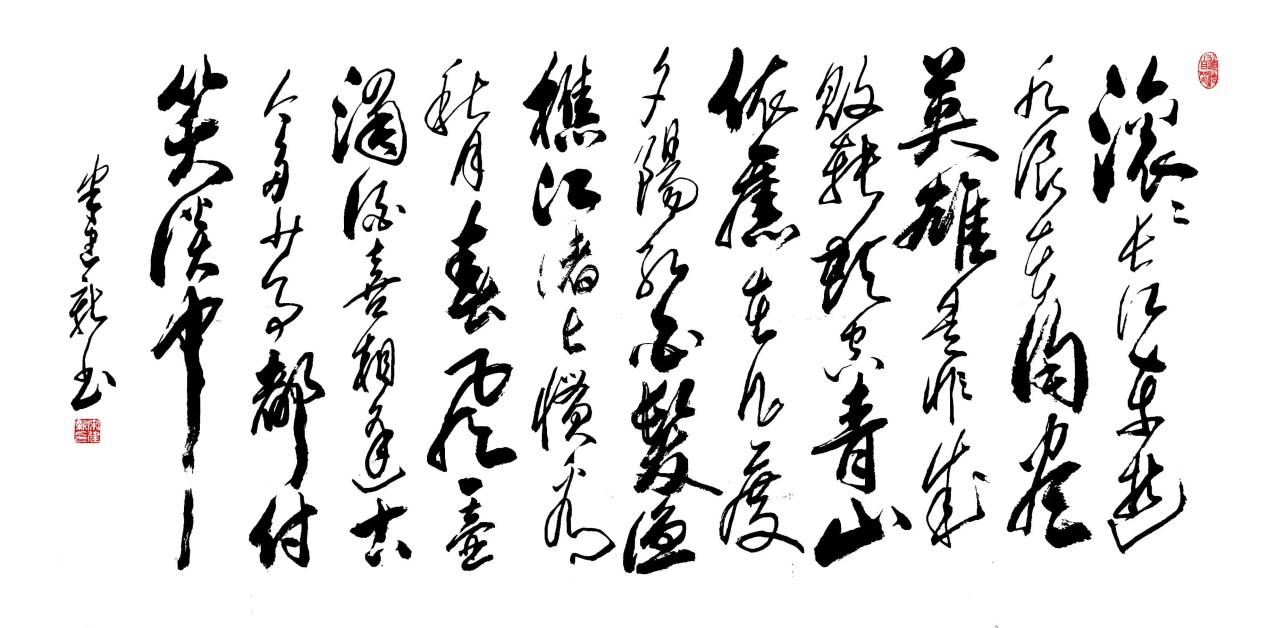 滚〻长江东逝
水浪花淘尽
英雄是非成
败转头空青山
依舊在几度
夕陽红白髮渔
樵江渚上惯看
秋月春风一壶
濁酒喜相逢古
今多少事都付
笑谈中
建新书